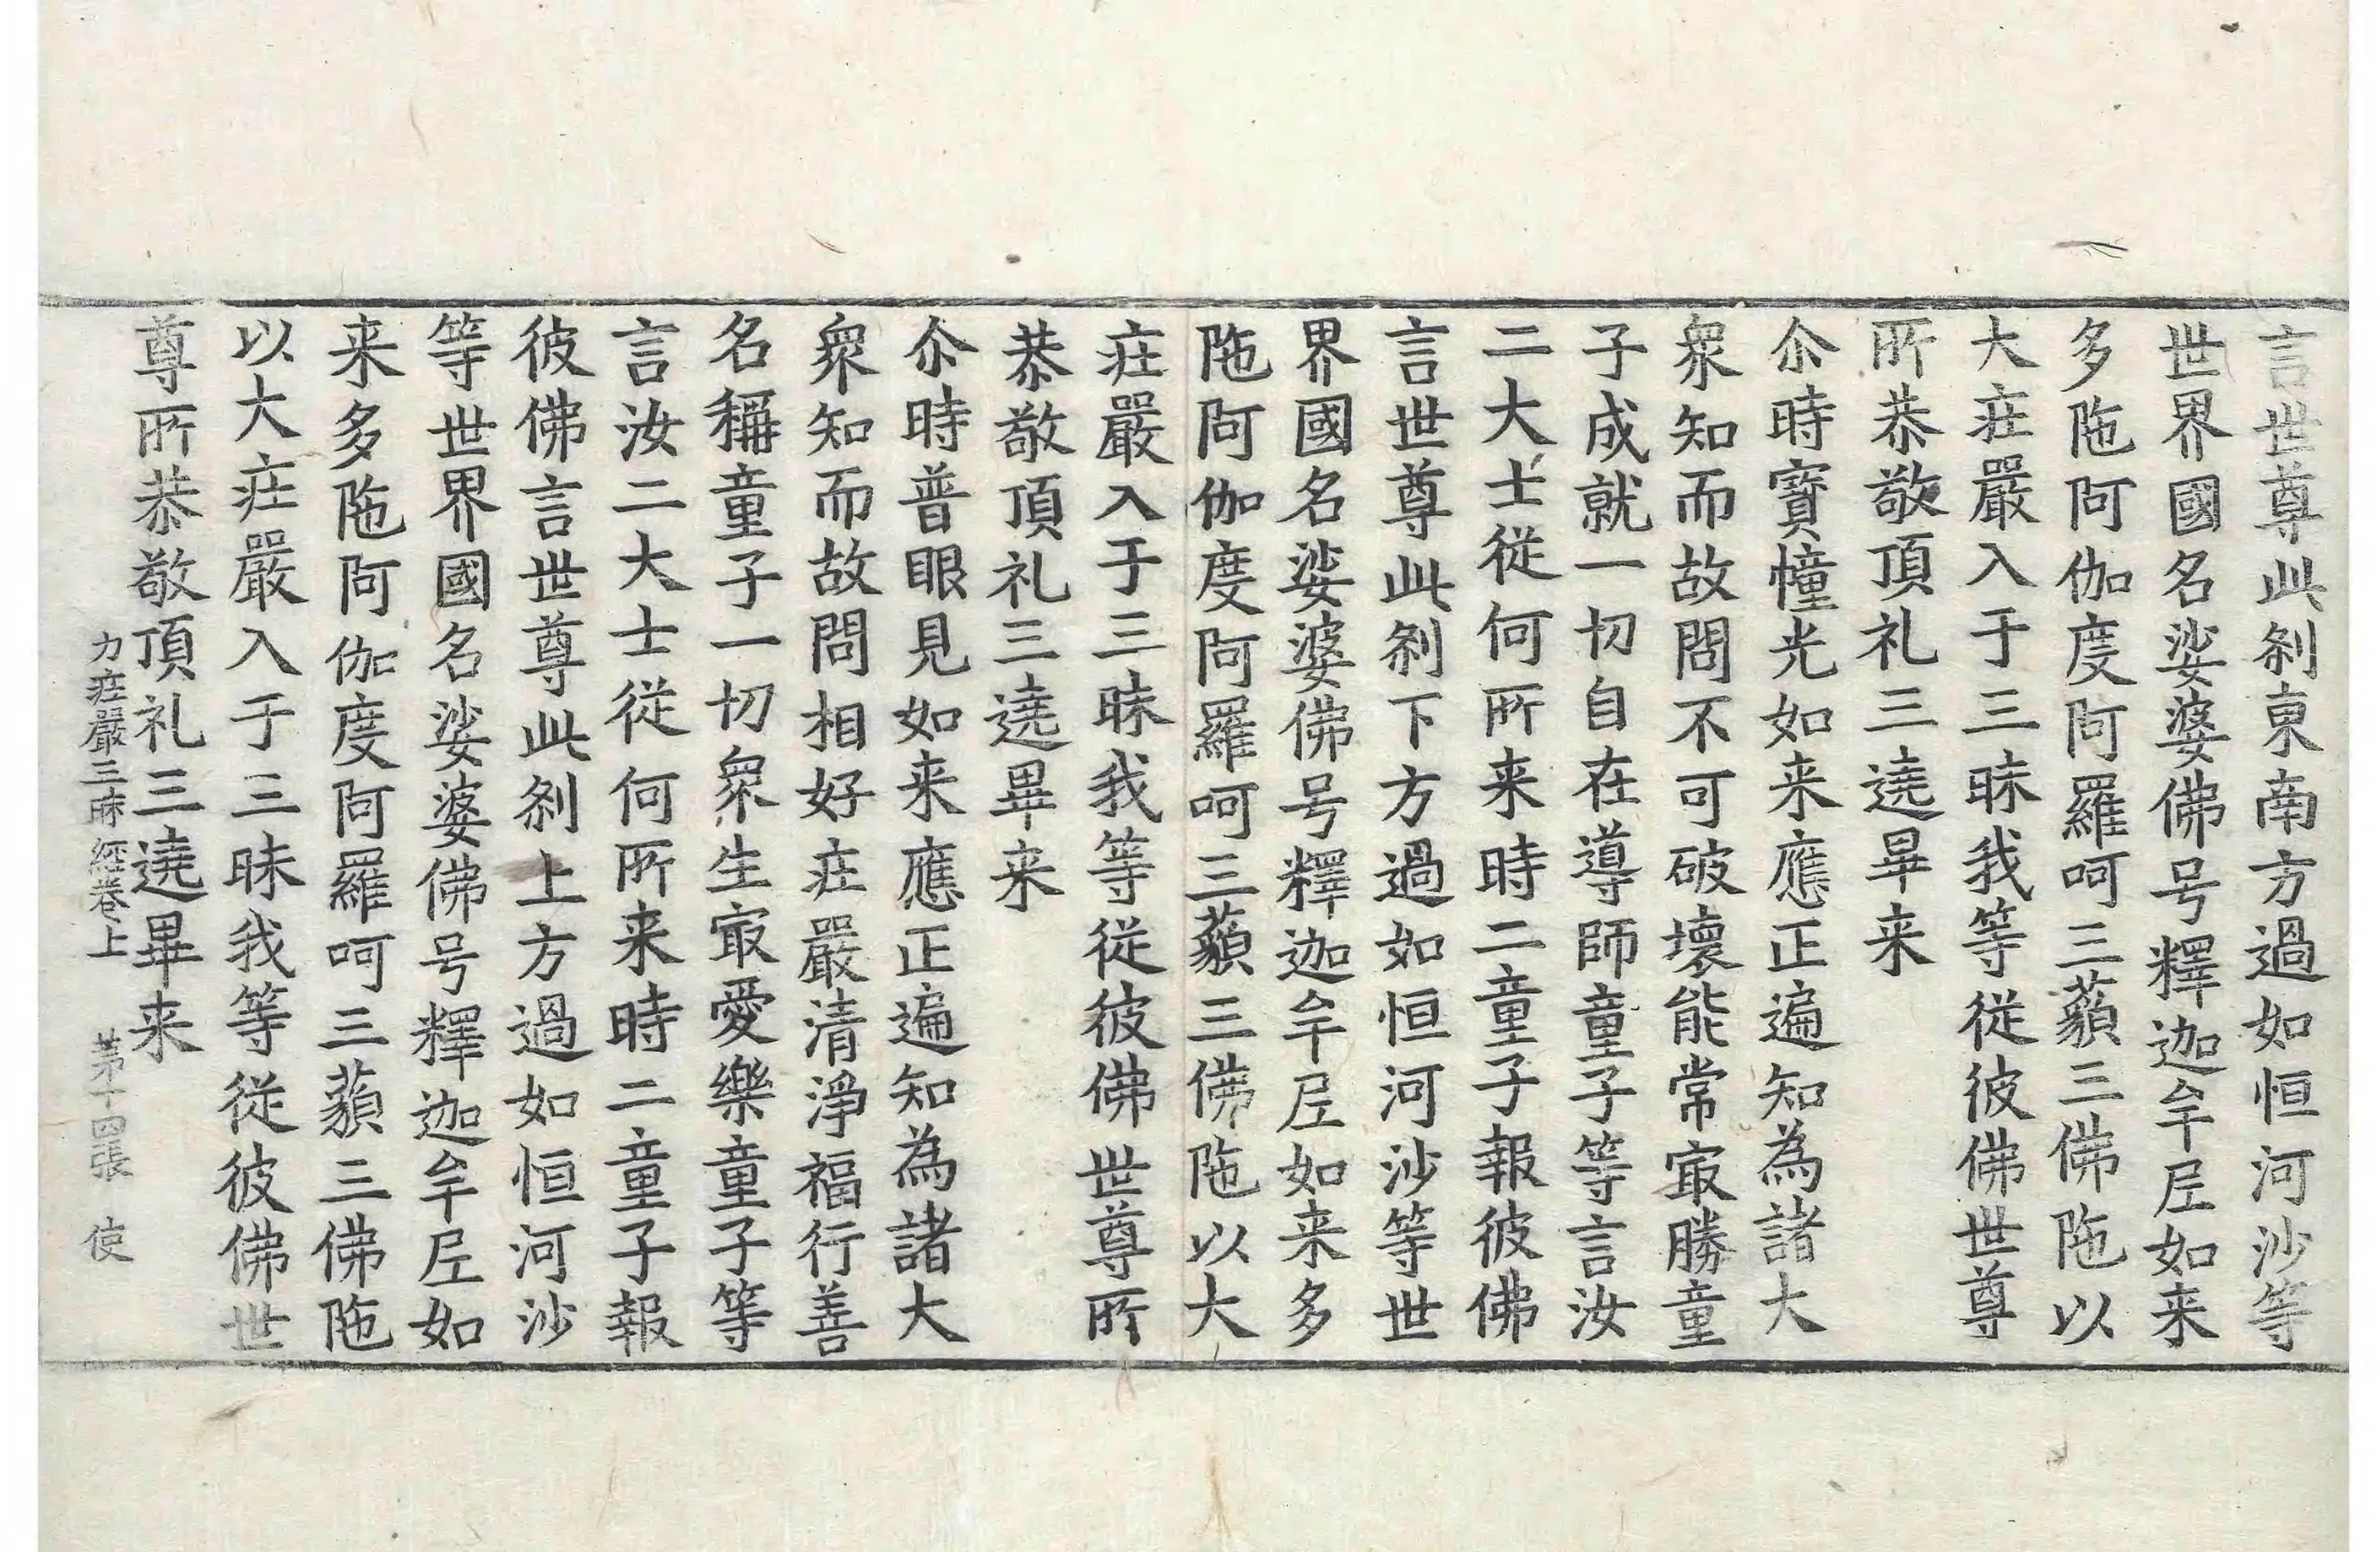 言世尊此刹東南方過如恒河沙等
世界國名娑婆佛号釋迦牟尼如来
多陁阿伽度阿羅呵三藐三佛陁以
大庄嚴入于三昧我等従彼佛世尊
所恭敬頂礼三遶畢来
尒時寶幢光如来應正遍知為諸大
衆知而故問不可破壞能常㝡勝童
子成就一切自在導師童子等言汝
二大士従何所来時二童子報彼佛
言世尊此刹下方過如恒河沙等世
界國名娑婆佛号釋迦牟尼如来多
陁阿伽度阿羅呵三藐三佛陁以大
庄嚴入于三昧我等従彼佛世尊所
恭敬頂礼三遶畢来
尒時普眼見如来應正遍知為諸大
衆知而故問相好庄嚴清淨福行善
名稱童子一切衆生㝡愛樂童子等
言汝二大士従何所来時二童子報
彼佛言世尊此刹上方過如恒河沙
等世界國名娑婆佛号釋迦牟尼如
来多陁阿伽度阿羅呵三藐三佛陁
以大庄嚴入于三昧我等従彼佛世
尊所恭敬頂礼三遶畢来
力庄嚴三昧經卷上 苐十四張 使